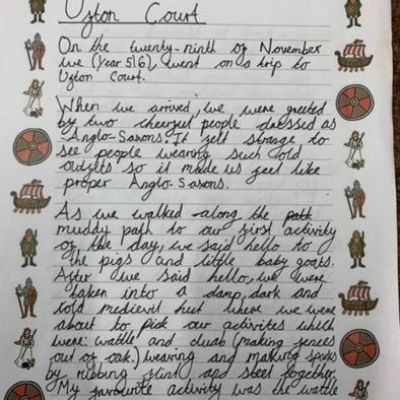 Ufton Court
On the twenty-ninth of November
we (Year 5/6), went on a trip to
Ufton Court.
When we arrived, we were greeted
by two cheerful people dressed as
Anglo-Saxons. It felt strange to
see people wearing such old
outfits so it made us feel like
proper Anglo-Saxons.
As we walked along the path
muddy path to our first activity
of the day, we said hello to
the pigs and little baby goats.
After we said hello, we were
taken into a damp, dark and
cold medievil hut where we were
about to pick our activites which
were: wattle and daub (making fences
out of oak,) weaving and making sparks
by rubbing flint and steel together.
My favourite activity was the wattle